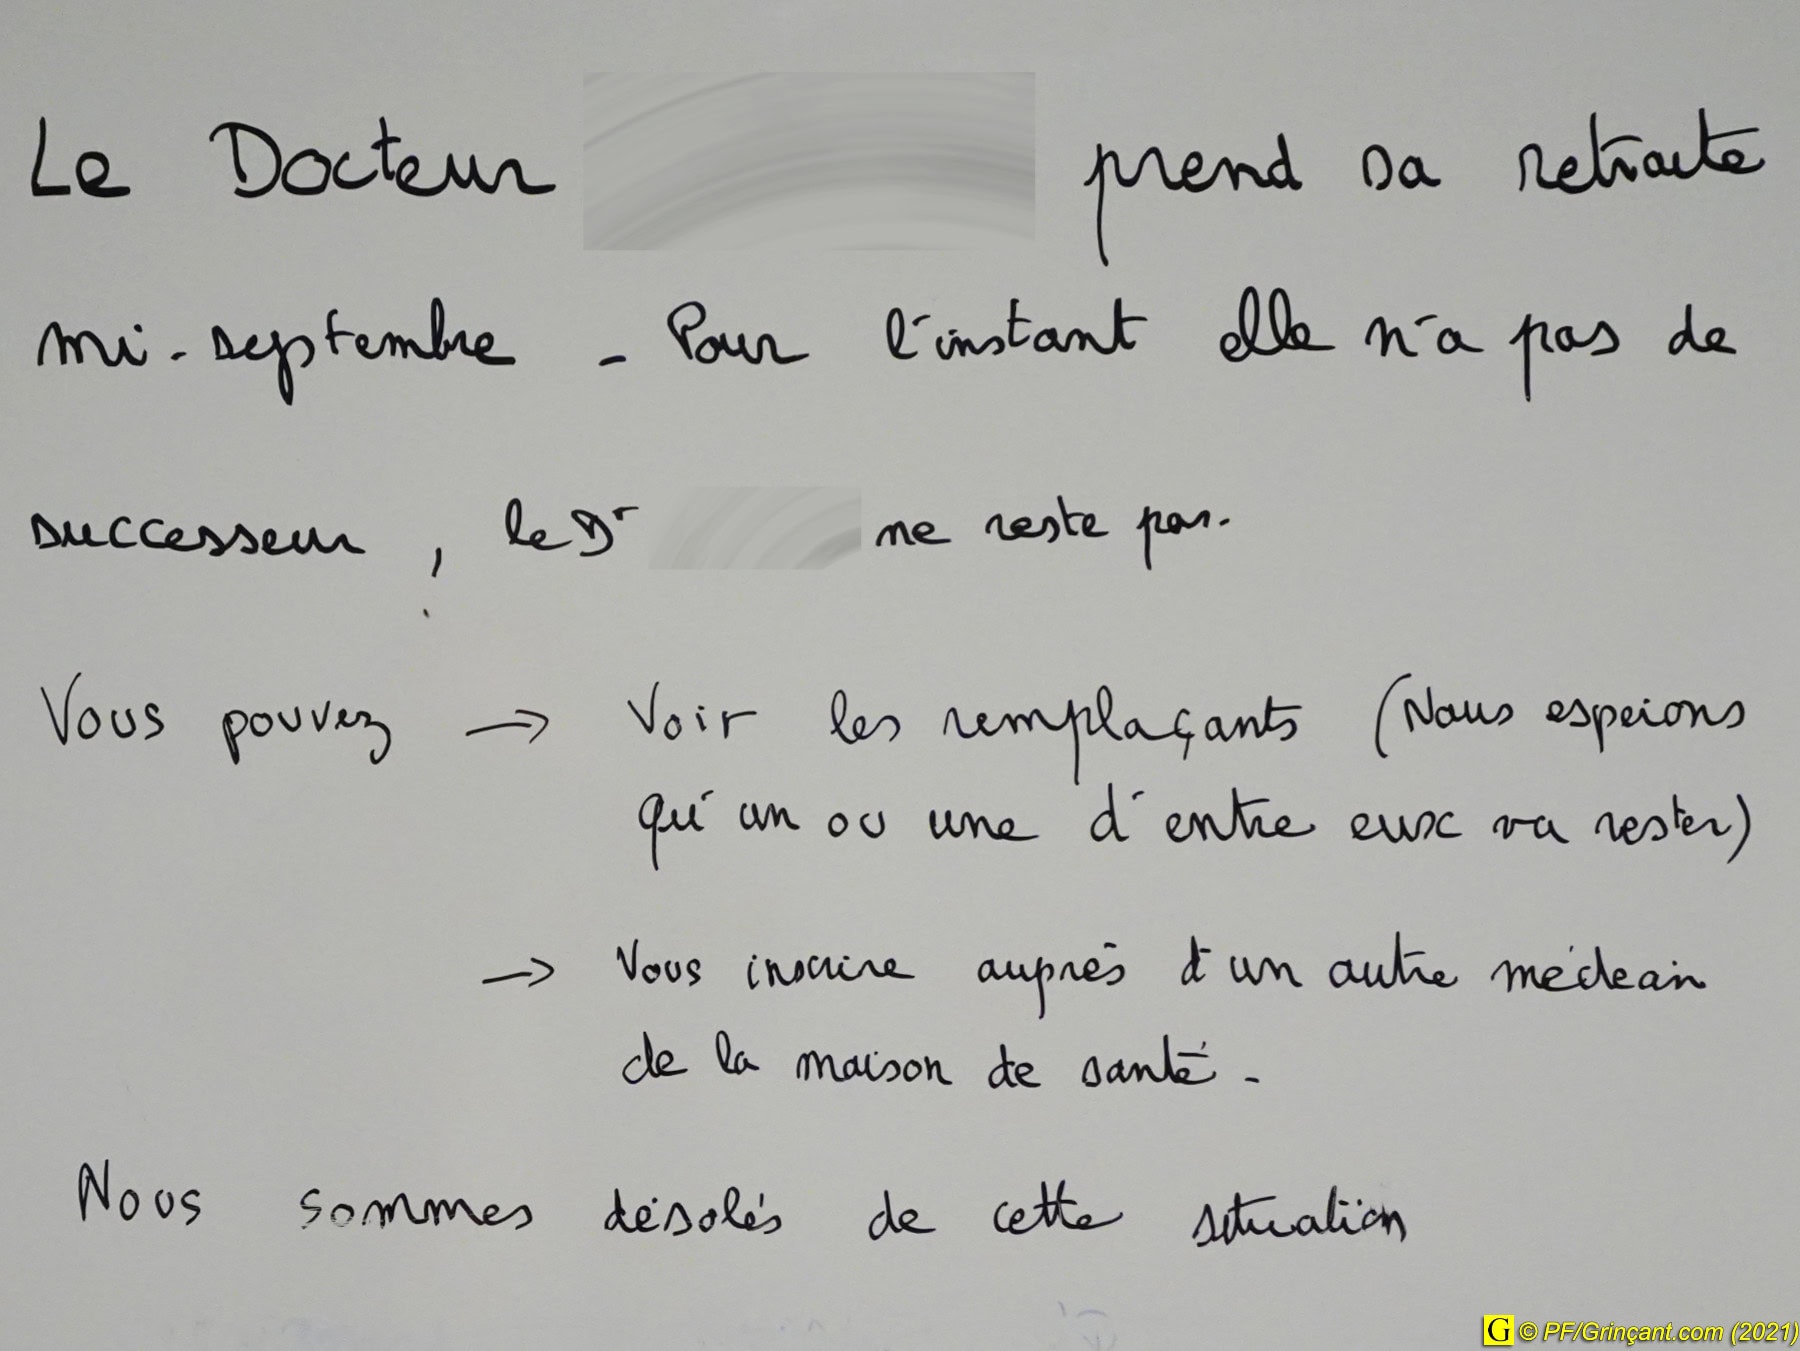 Le Docteur prend sa retraite
mi-septembre - Pour l'instant elle n'a pas de
successeur, le Dr ne reste pas.
Vous pouvez → Voir les remplaçants (Nous espérons
qu'un ou une d'entre eux va rester)
→ Vous inscrire auprès d'un autre médecin
de la maison de santé -
Nous sommes désolés de cette situation
G © PF/Grinçant.com (2021)